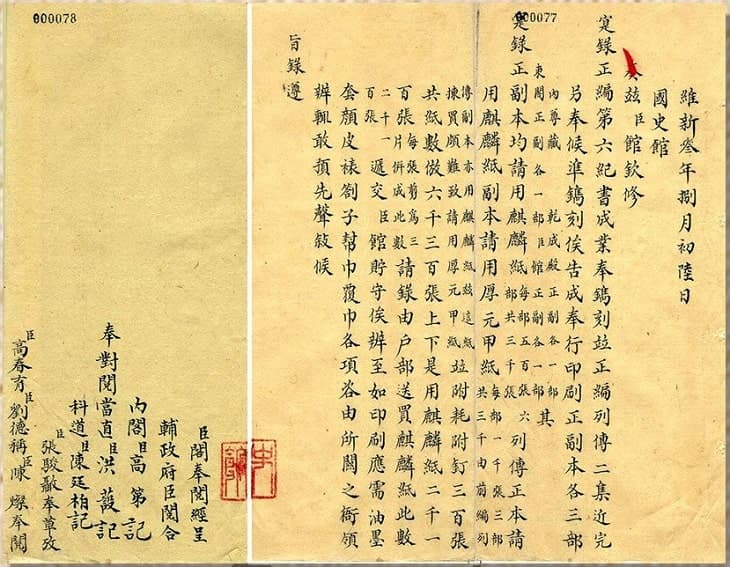 000077
維新叁年捌月初陸日
國史館
茲臣館欽修
寔錄正編第六紀書成業奉鐫刻竝正編列傳二集近完
另奉候準鐫刻俟告成奉行印刷正副本各三部
內尊藏 乾成殿正副各一部
東閣正副各一部臣館正副各一部 其
寔錄正副本均請用麒麟紙 每部五百張六
部共三千張 列傳正本請
用麒麟紙副本請用厚元甲紙 每部一千張三部
共三千由前編列
傳副本亦用麒麟紙茲這紙
揀買頗難致請用厚元甲紙 竝附耗附釘三百張
共紙數倣六千三百張上下是用麒麟紙二千一
百張 每張剪爲三
片併成此數 請錄由户部送買麒麟紙此數
二千一
百張 遞交臣館貯守俟辦至如印刷應需油墨
套顏皮裱劄子幫巾覆巾各項咨由所關之衙領
辦輒敢預先聲敍候
旨錄遵
000078
臣閣奉閱經呈
輔政府臣閱合
內閣臣高第記
奉對閱當直臣洪 記
科道臣陳廷栢記
臣張駿 奉草攷
臣高春育臣劉德稱臣陳燦奉閱